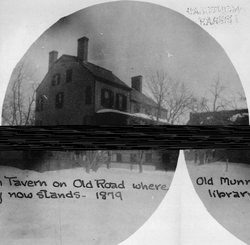 n Tavern on Old Road where
y now stands - 1879
Old Munr
library